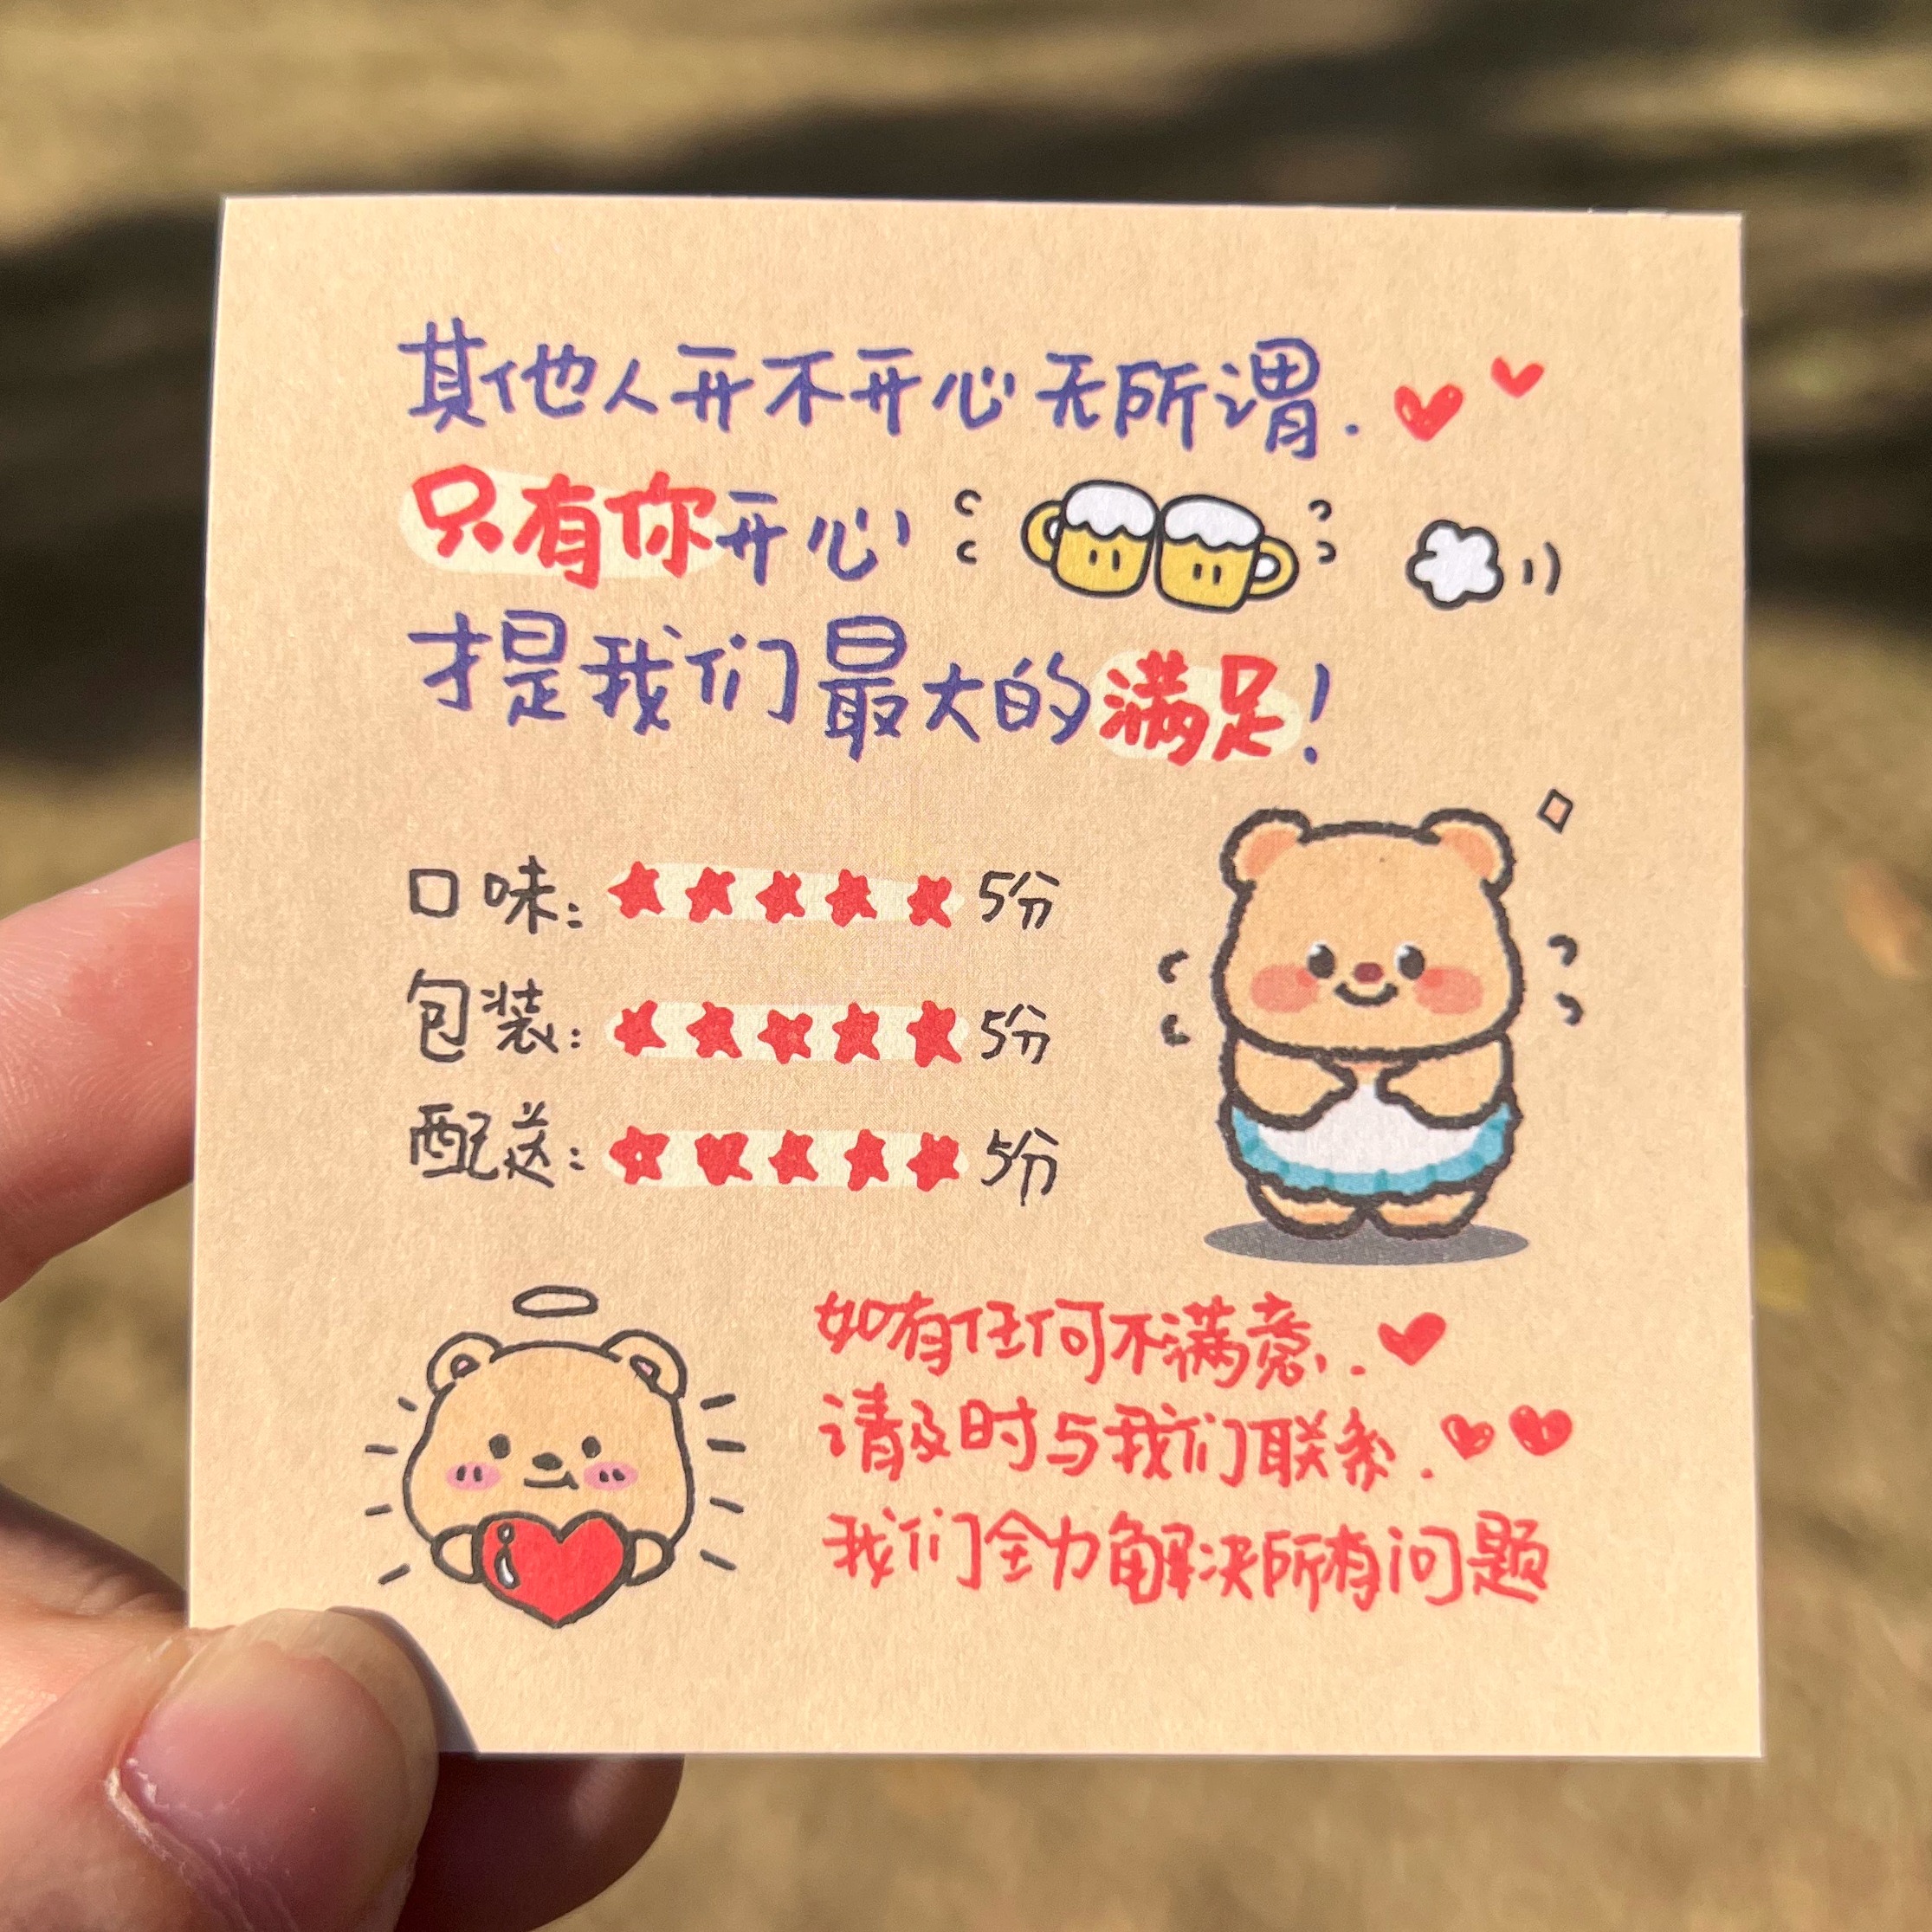 其他人开不开心无所谓.
只有你开心
才是我们最大的满足!
口味: ★★★★★ 5分
包装: ★★★★★ 5分
配送: ★★★★★ 5分
如有任何不满意..
请及时与我们联系.
我们全力解决所有问题